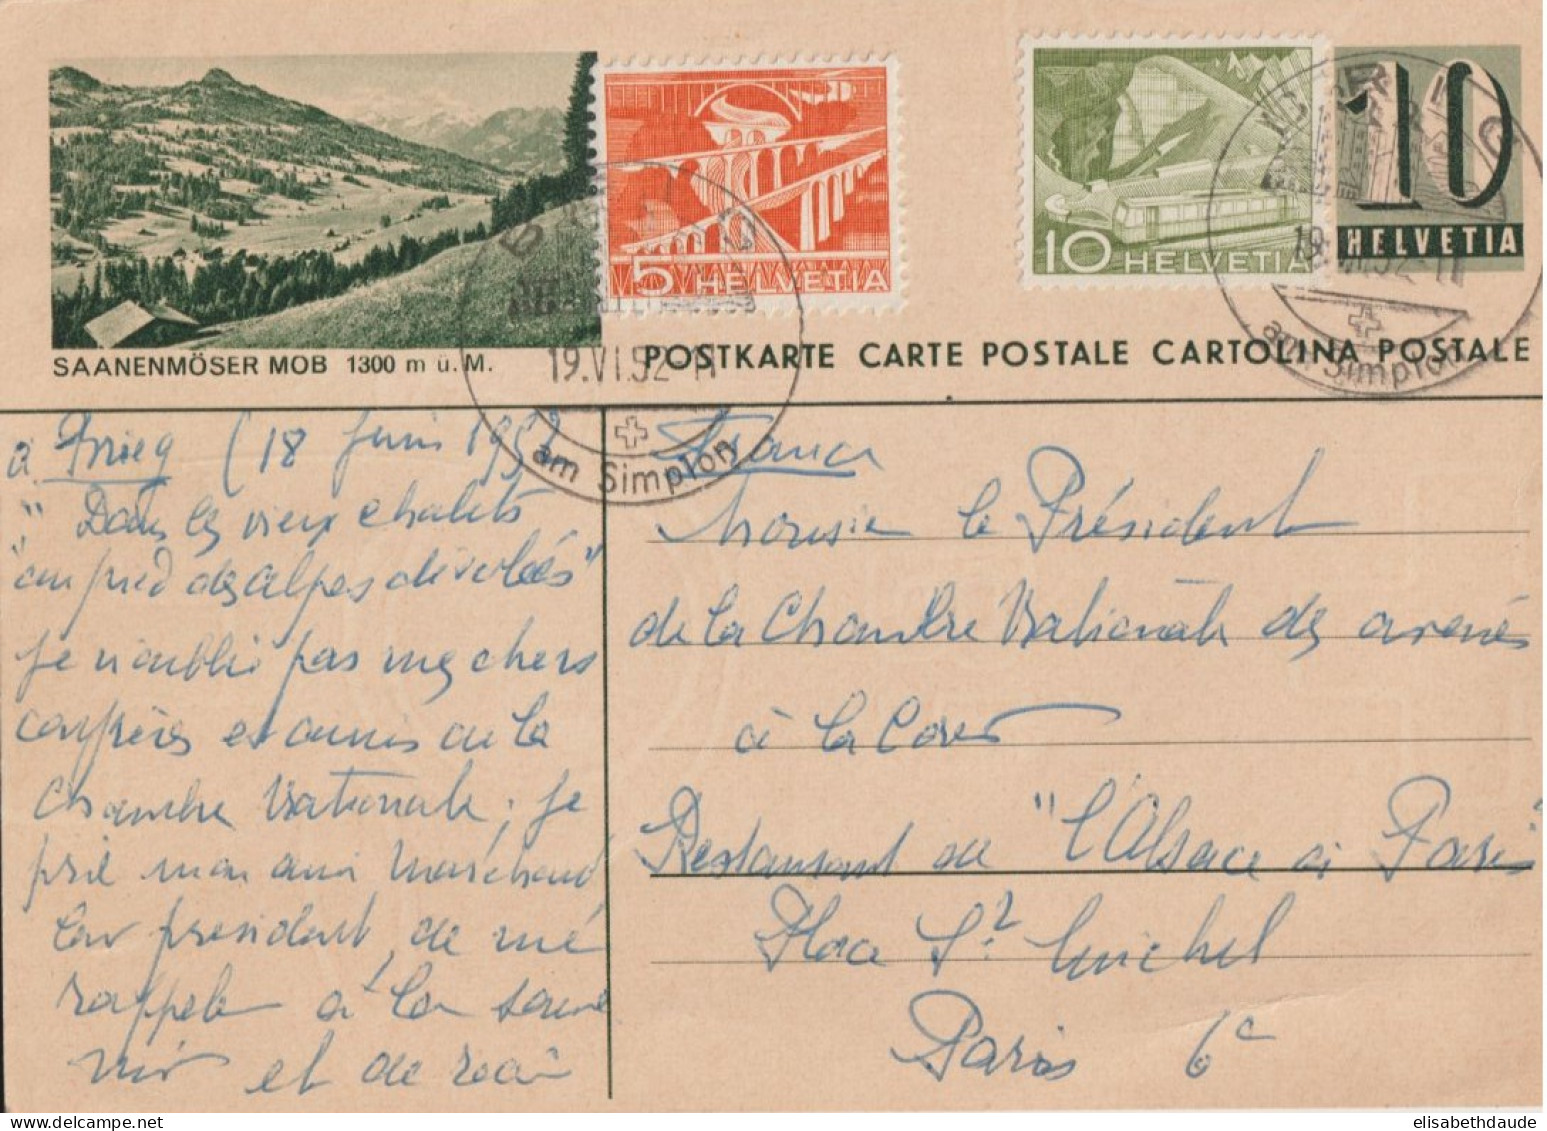 SAANENMÖSER MOB 1300 m ü. M.
5 HELVETIA
10 HELVETIA
10
HELVETIA
19.VI.52-11
am Simplon
19.VI.52-11
am Simplon
POSTKARTE CARTE POSTALE CARTOLINA POSTALE
à Brieg (18 Juin 1952
"Dans les vieux chalets
"au pied des alpes dévoilés"
je n'oublie pas mes chers
confrères et amis de la
Chambre Nationale, je
prie mon ami Marchand
président, de me
rappeler à la souve
nir et de
France
Monsieur le Président
de la Chambre Nationale des
à la
Restaurant de "l'Alsace à Paris"
Place St Michel
Paris 6e
elisabethdaude